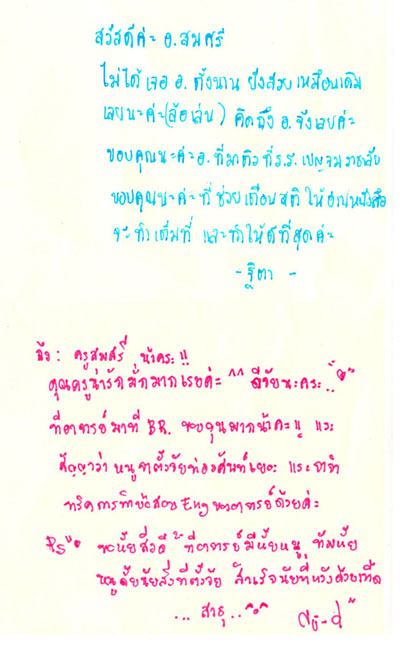 สวัสดีค่ะ อ.สมศรี
ไม่ได้เจอ อ. ตั้งนาน ยังสวย เหมือนเดิม
เลยนะค่ะ(ล้อเล่น) คิดถึง อ. จังเลยค่ะ
ขอบคุณนะค่ะ อ. ที่มาติวที่ ร.ร. เบญจมราชาลัย
ขอบคุณนะค่ะ ที่ช่วยเตือนสติ ให้อ่านหนังสือ
จะทำเต็มที่ และทำให้ดีที่สุดค่ะ
- ฐิตา -
ถึง : ครูสมศรี น้าคระ !!
คุณครูน่ารักมั่กมากเรยค่ะ ^^ ดีจัยนะคระ
ที่อาจารย์มาที่ BR. ขอบคุนมากน้าคะ !! แระ
สัญญาว่า หนูจาตั้งจัยท่องศัพท์เยอะ แระจาจำ
ทริคการทำข้อสอบ Eng ของอาจารย์ด้วยค่ะ
PS ขอหั้ยสิ่งดี ๆ ที่อาจารย์มีหั้ยหนู ทัมหั้ย
หนูด้ัยนัยสิ่งที่ตั้งจัย สำเร็จนัยที่หวังด้วยเทิ้ด
... สาธุ ..^o^